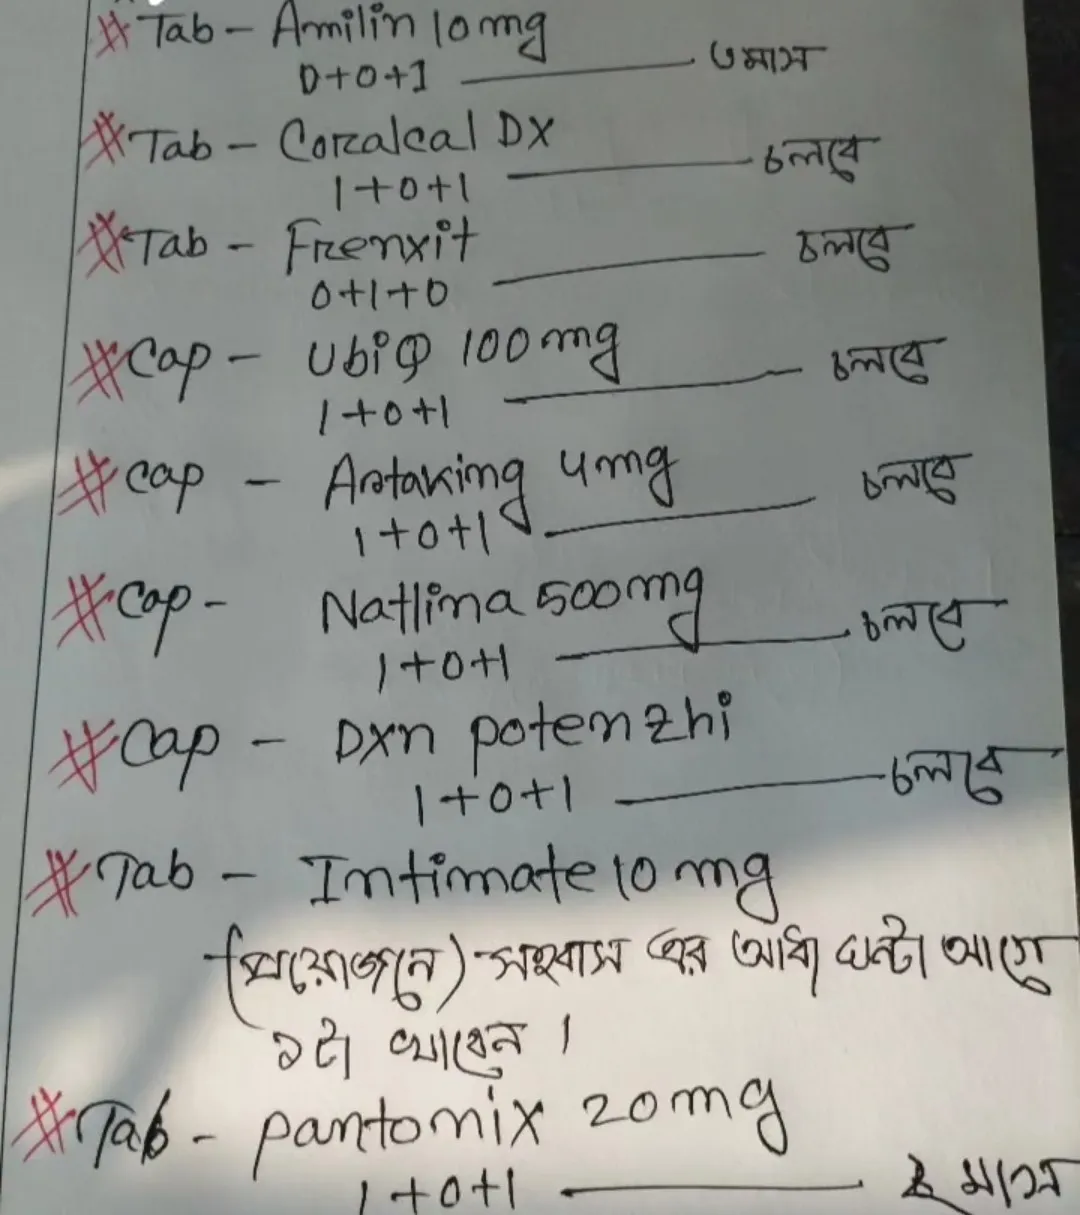 # Tab - Amilin 10 mg
0+0+1 ৩ মাস
# Tab - Coralcal DX
1+0+1 চলবে
# Tab - Frenxit
0+1+0 চলবে
# Cap - UbiQ 100 mg
1+0+1 চলবে
# Cap - Astaking 4 mg
1+0+1 চলবে
# Cap - Natlina 500 mg
1+0+1 চলবে
# Cap - Dxn potenzhi
1+0+1 চলবে
# Tab - Intimate 10 mg
(প্রয়োজনে) - সহবাস এর আধা ঘন্টা আগে
১টা খাবেন।
# Tab - pantonix 20 mg
1+0+1 ২ মাস